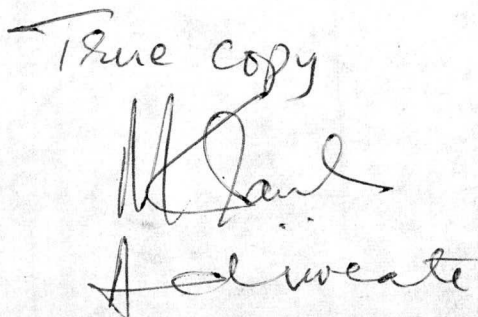 True copy
Advocate